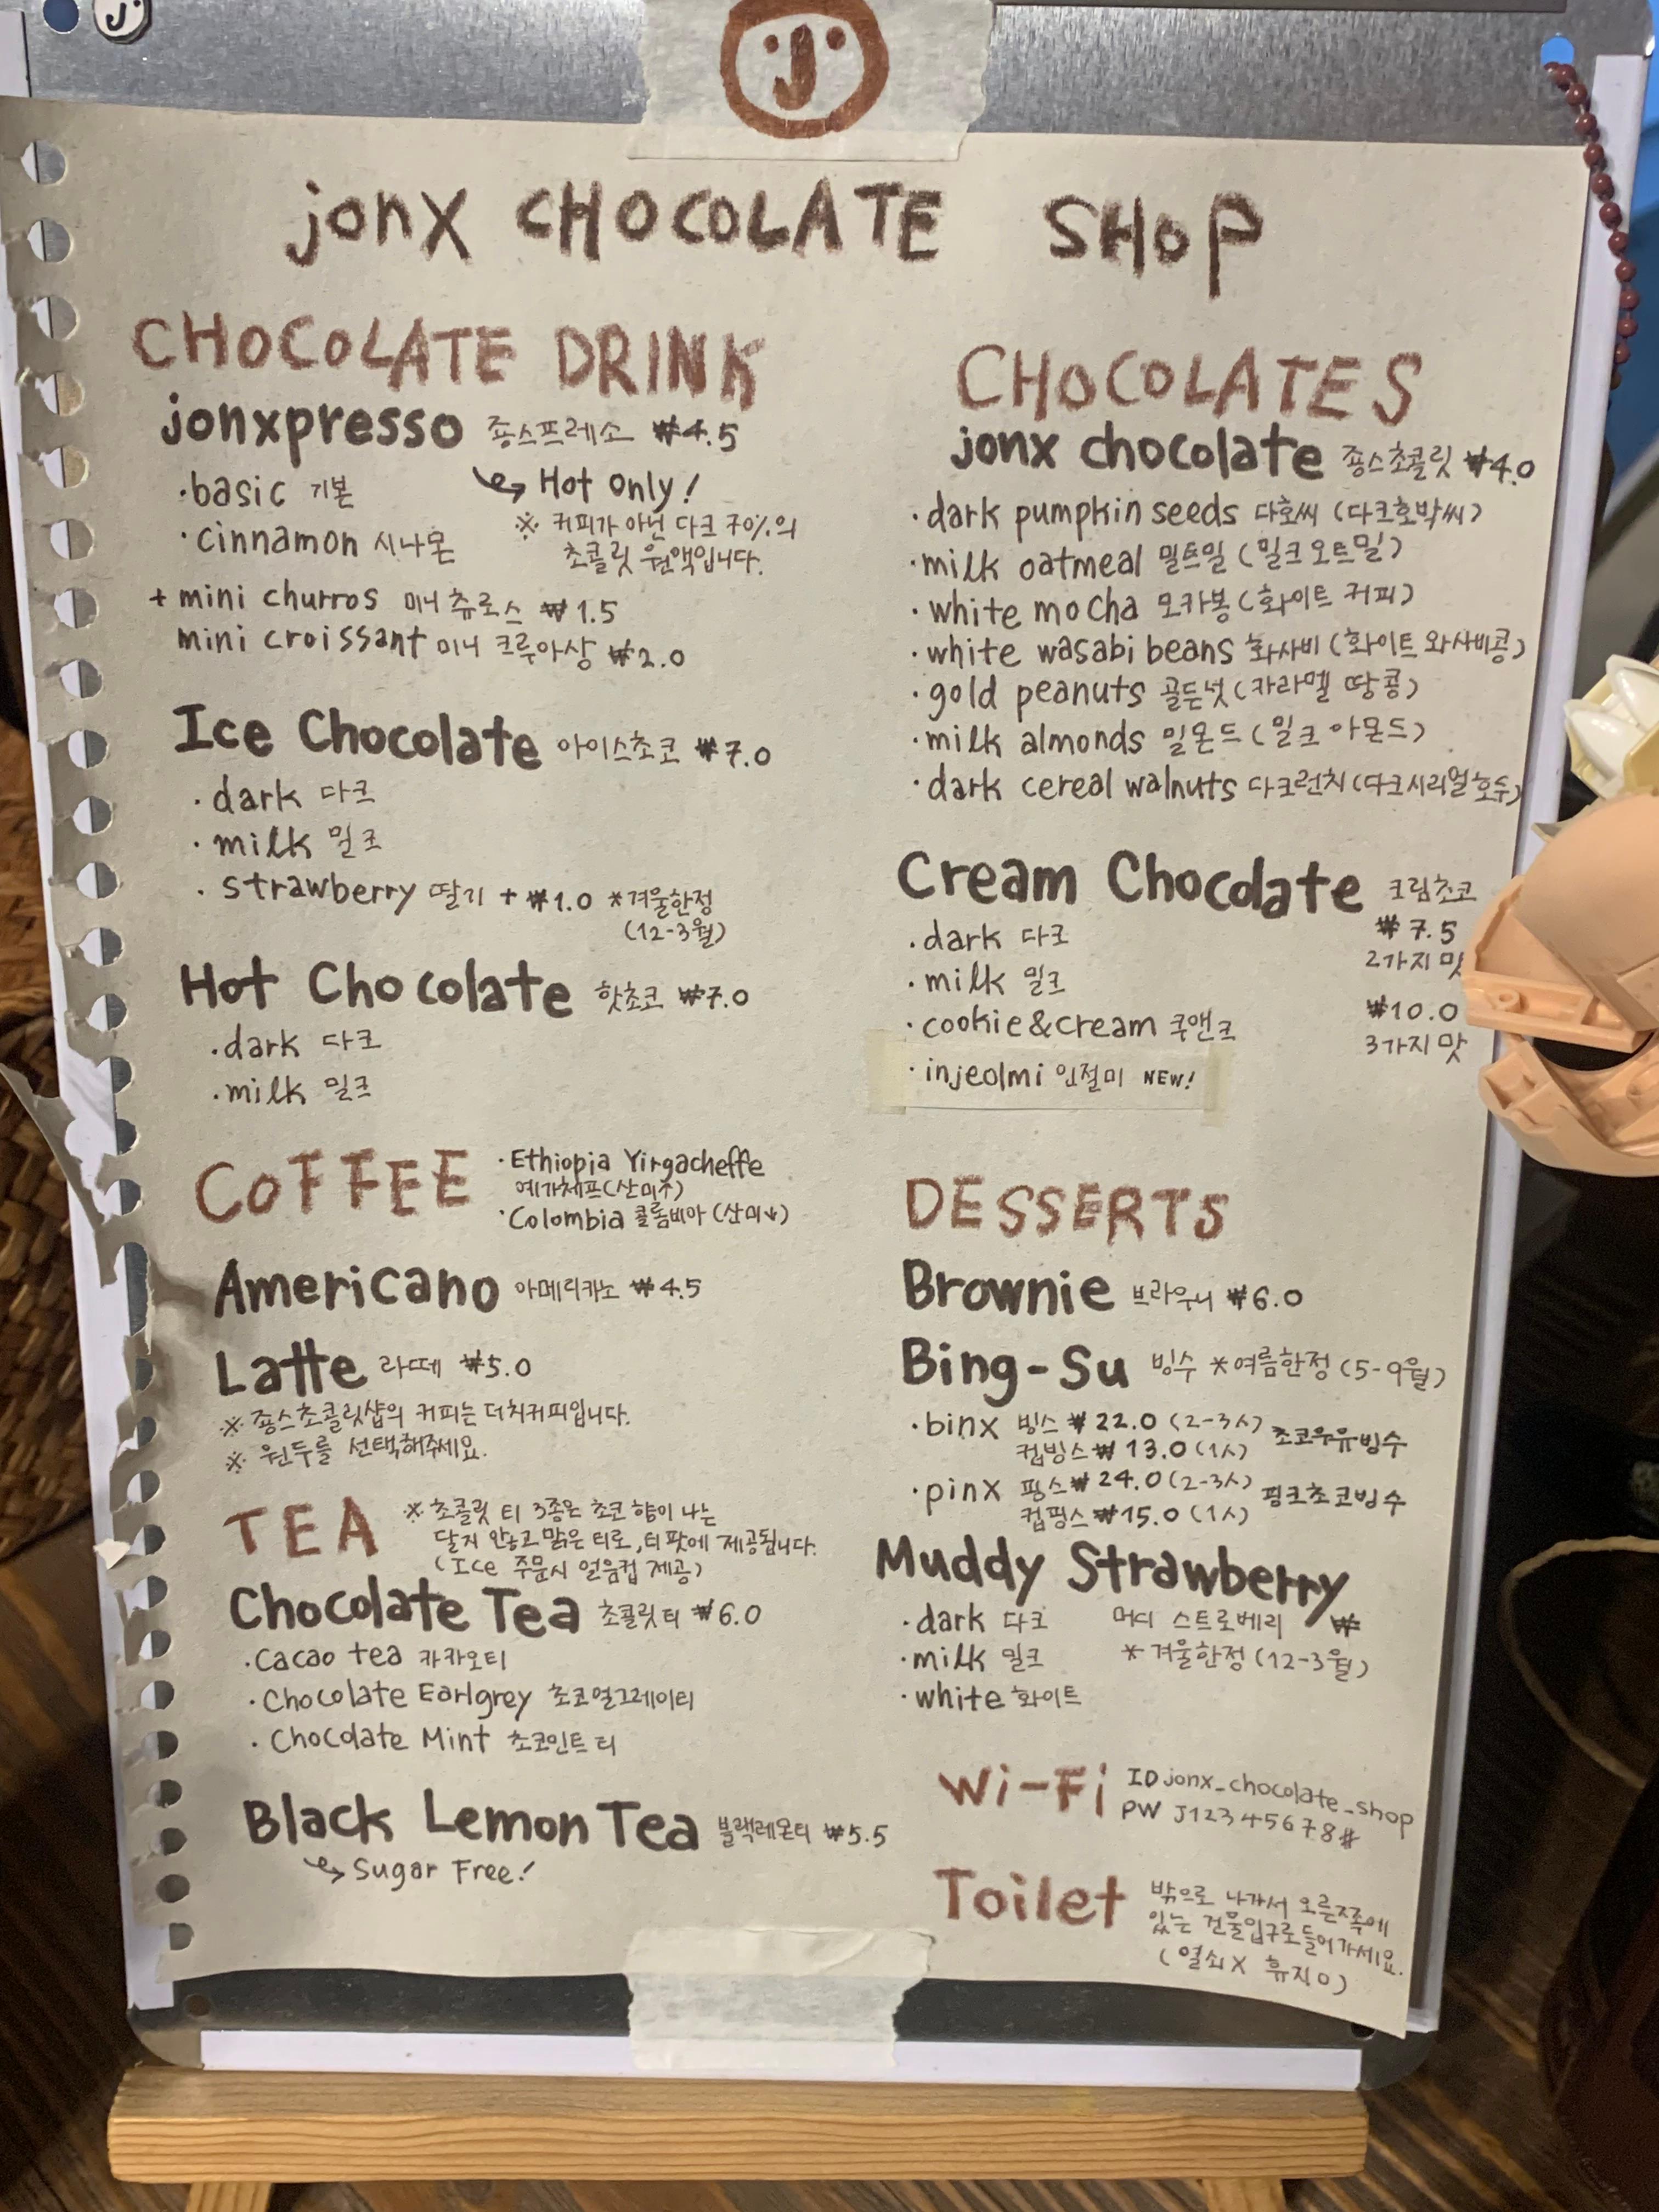 J
J
jonx CHOCOLATE SHOP
CHOCOLATE DRINK
jonxpresso 죤스프레소 ₩4.5
Hot only!
·basic 기본
·cinnamon 시나몬
※ 커피가 아닌 다크 70%의
초콜릿 원액입니다.
+ mini churros 미니 츄로스 ₩1.5
mini croissant 미니 크루아상 ₩2.0
Ice Chocolate 아이스초코 ₩7.0
·dark 다크
·milk 밀크
·strawberry 딸기 +₩1.0 *겨울한정
(12-3월)
Hot Chocolate 핫초코 ₩7.0
·dark 다크
·milk 밀크
COFFEE
·Ethiopia Yirgacheffe
예가체프(산미↑)
·Colombia 콜롬비아 (산미↓)
Americano 아메리카노 ₩4.5
Latte 라떼 ₩5.0
※ 죤스초콜릿샵의 커피는 더치커피입니다.
※ 원두를 선택해주세요.
TEA
※ 초콜릿 티 3종은 초코 향이 나는
달지 않고 맑은 티로, 티 팟에 제공됩니다.
(Ice 주문시 얼음컵 제공)
Chocolate Tea 초콜릿티 ₩6.0
·Cacao tea 카카오티
·Chocolate Earlgrey 초코얼그레이티
·Chocolate Mint 초코민트 티
Black Lemon Tea 블랙레몬티 ₩5.5
Sugar Free!
CHOCOLATES
jonx chocolate 죤스초콜릿 ₩4.0
·dark pumpkin seeds 다호씨 (다크호박씨)
·milk oatmeal 밀트밀 (밀크오트밀)
·white mocha 모카봉 (화이트 커피)
·white wasabi beans 화사비 (화이트 와사비콩)
·gold peanuts 골든넛 (카라멜 땅콩)
·milk almonds 밀몬드 (밀크 아몬드)
·dark cereal walnuts 다크런치 (다크시리얼호두)
Cream Chocolate 크림초코
·dark 다크
₩7.5
2가지 맛
·milk 밀크
·cookie&cream 쿠앤크
₩10.0
3가지 맛
·injeolmi 인절미 NEW!
DESSERTS
Brownie 브라우니 ₩6.0
Bing-Su 빙수 *여름한정 (5-9월)
·binx 빙스 ₩22.0 (2-3人) 초코우유빙수
컵빙스 ₩13.0 (1人)
·pinx 핑스 ₩24.0 (2-3人) 핑크초코빙수
컵핑스 ₩15.0 (1人)
Muddy Strawberry
·dark 다크 머디 스트로베리 ₩
·milk 밀크 *겨울한정 (12-3월)
·white 화이트
Wi-Fi
ID jonx_chocolate_shop
PW J12345678#
Toilet
밖으로 나가서 오른쪽에
있는 건물입구로 들어가세요.
(열쇠X 휴지O)